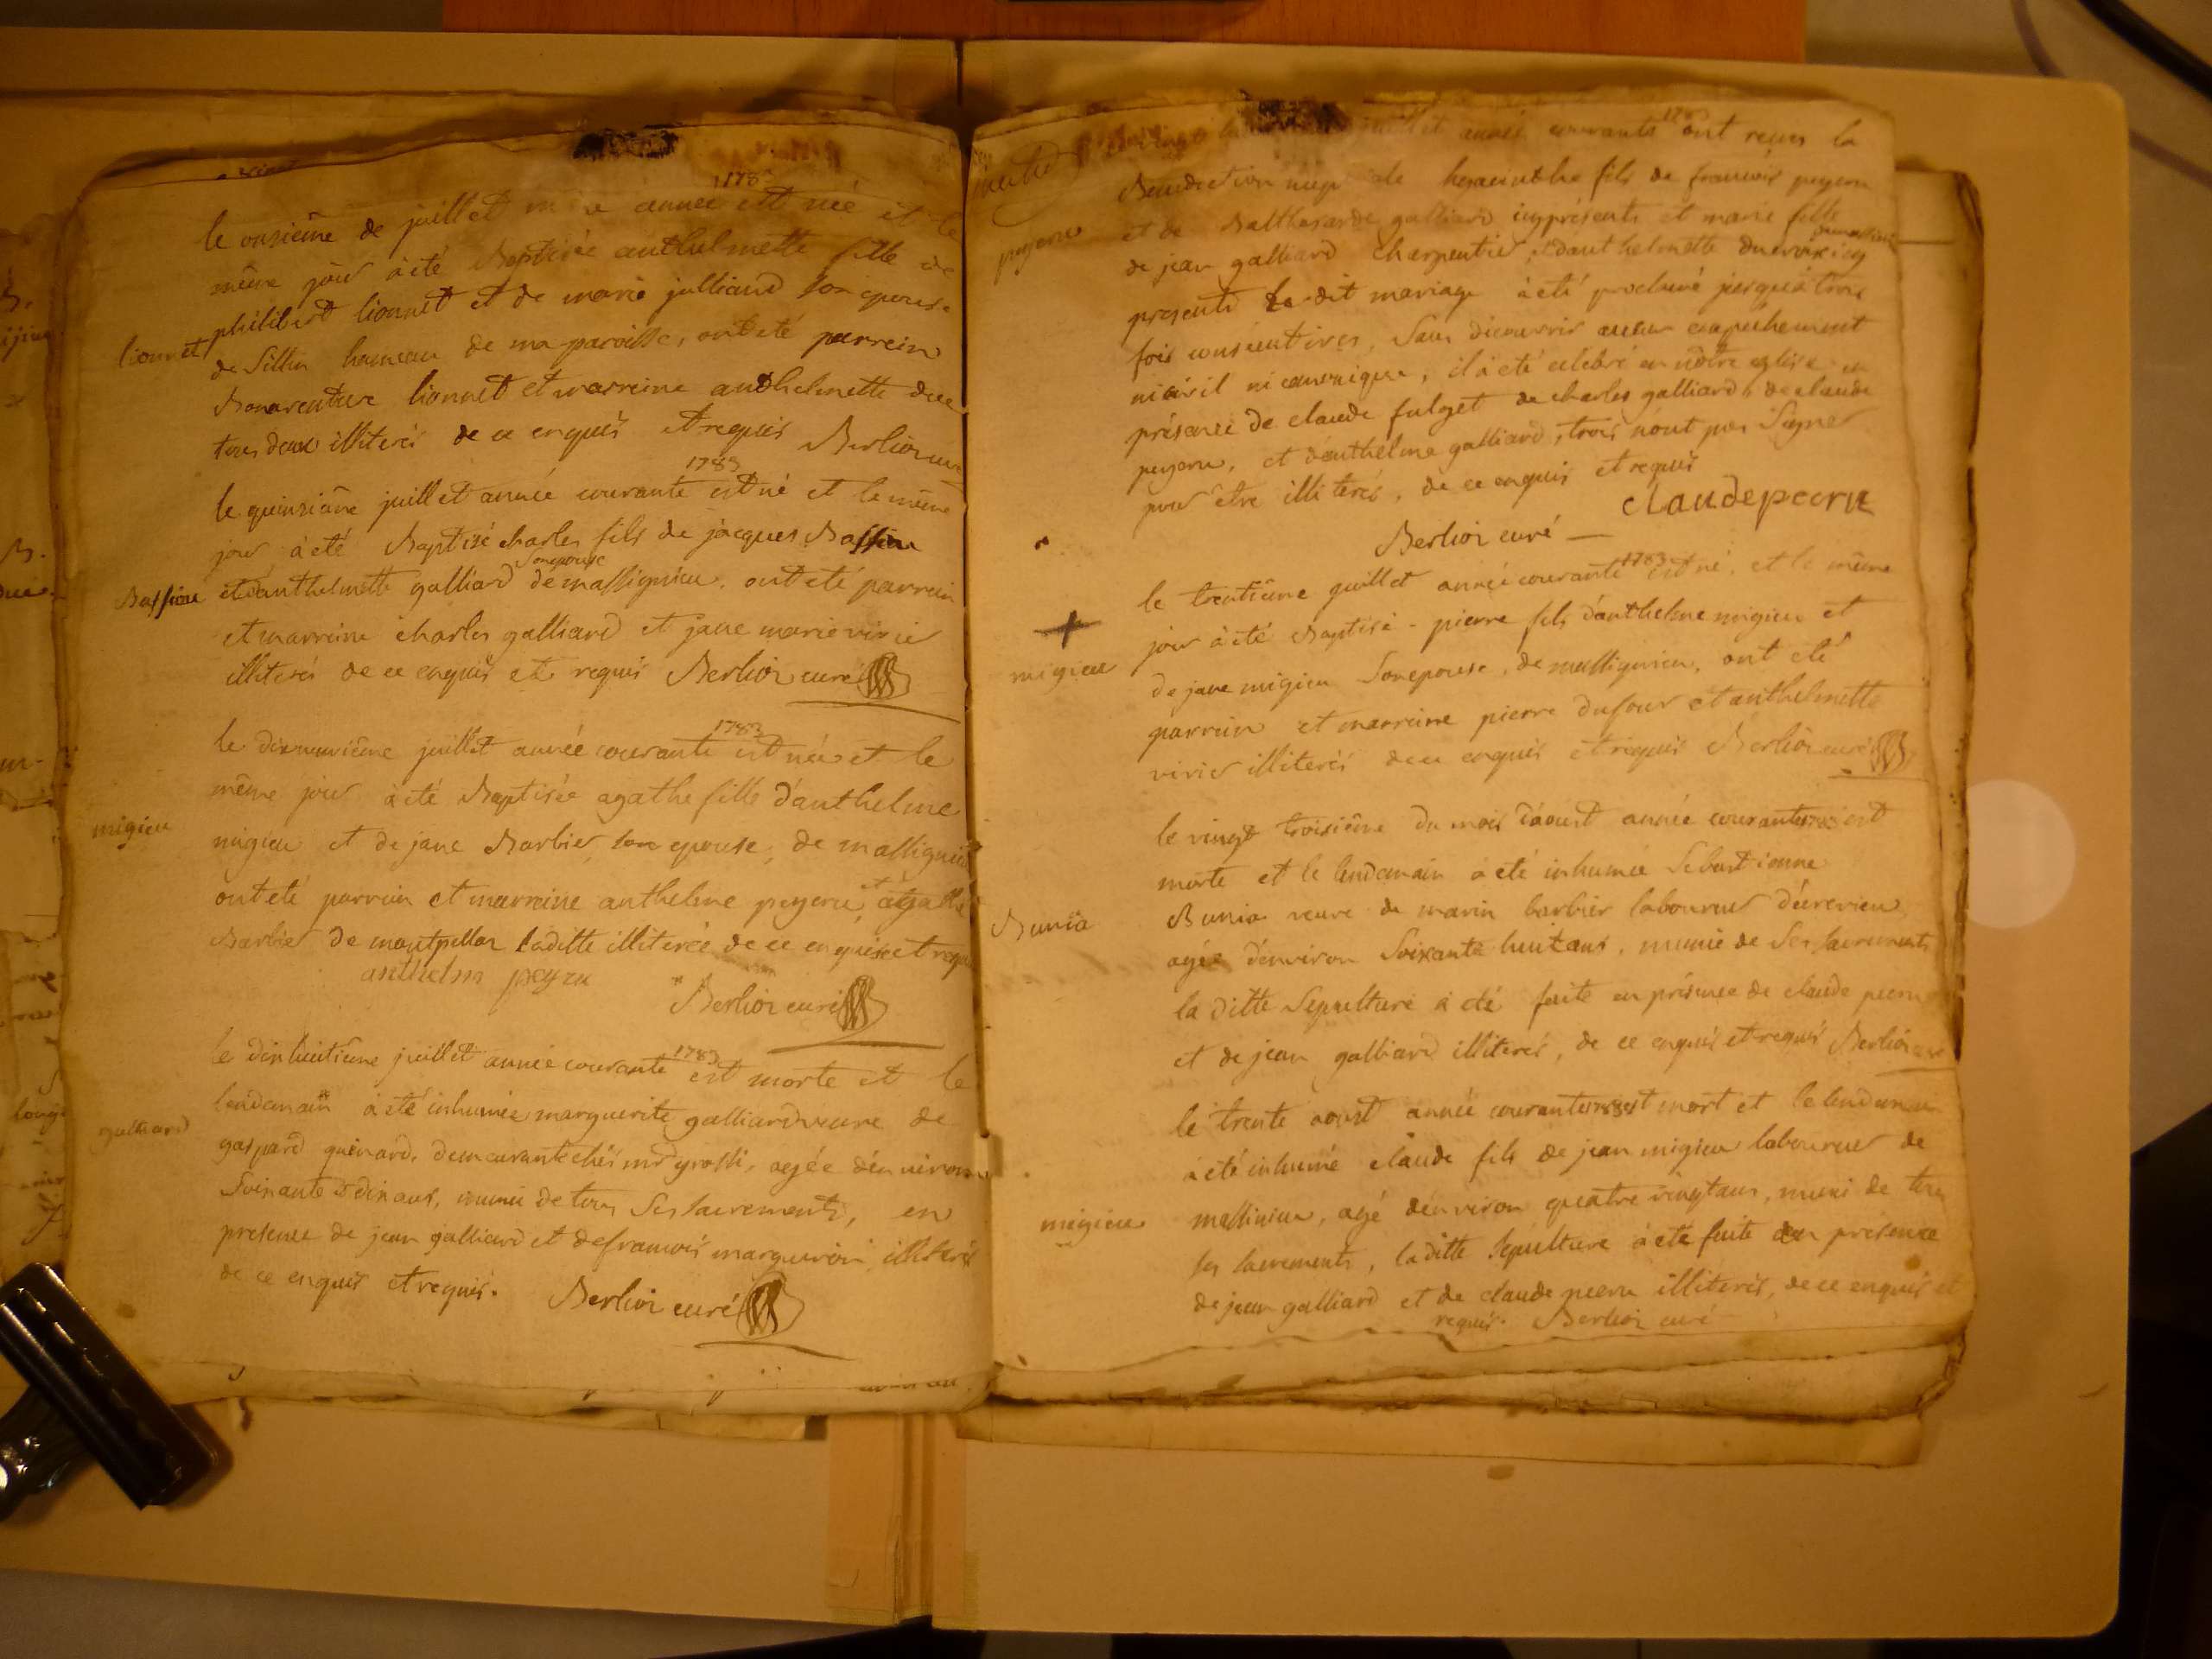 1783
le onsieme de juillet année est née et le
même jour à été Baptisée anthelmette fille de
philibert lionnet et de marie julliand son epouse
lionnet
de Sillin hameau de ma paroisse, ont été parrein
Bonaventure lionnet et marreine anthelmette duc
tous deux illiterés de ce enquis et requis Berlioz curé
1783
le quinsième juillet année courante est né et le même
jour à été Baptisé charles fils de jacques Bassieu
Son epouse
Bassieu
et d'anthelmette galliard de massignieu. ont été parrein
et marreine charles galliard et jane marie virier
illiterés de ce enquis et requis Berlioz curé
1783
le dixneuvième juillet année courante est née et le
même jour à été Baptisée agathe fille d'anthelme
migieu
migieu et de jane Barbier, son epouse, de massignieu
ont été parrein et marreine anthelme peyeru, et agathe
Barbier de montpellas laditte illiterée de ce enquise et requ
anthelm peyru
Berlioz curé
1783
le dixhuitieme juillet année courante est morte et le
lendemain à été inhumée marguerite galliard veuve de
galliard
gaspard guinard, demeurante chés mr grossi, agée d'environ
Soixante et dix ans, munie de tous Ses sacrements, en
presence de jean galliard et de francois marguiron illiterés
de ce enquis et requis. Berlioz curé
1783
juillet année courante ont reçus la
Benediction hyacinthe fils de francois peyeru
peyeru
et de Balthesarde galliard icy présents et marie fille
de jean galliard charpentier, et d'anthelmette ducroix icy
presents Le dit mariage à été proclamé jusqu'à trois
fois consecutives, Sans decouvrir aucun empechement
ni civil ni canonique, il à été celebré en nôtre eglise en
présence de claude fulget de charles galliard, de claude
peyeru, et d'anthelme galliard, trois n'ont pas Signer
pour être illiterés, de ce enquis et requis
claude peeru
Berlioz curé
1783
le trentième juillet année courante est né, et le même
jour à été Baptisé pierre fils d'anthelme migieu et
migieu
de jane migieu Son epouse, de massignieu, ont été
parrein et marreine pierre dufour et anthelmette
virier illiterés de ce enquis et requis Berlioz curé
le vingt troisième du mois d'aoust année courante 1783 est
morte et le lendemain à été inhumée Sebastienne
Bunia
Bunia veuve de marin barbier laboureur d'ecrevieu
agée d'environ Soixante huit ans, munie de Ses sacrements
la ditte Sepulture à été faite en présence de claude peeru
et de jean galliard illiterés, de ce enquis et requis Berlioz curé
le trente aoust année courante 1783 est mort et le lendemain
à été inhumé claude fils de jean migieu laboureur de
migieu
massinieu, agé d'environ quatre vingt ans, muni de tous
ses sacrements, laditte sepulture à été faite en presence
de jean galliard et de claude peeru illiterés, de ce enquis et
requis. Berlioz curé